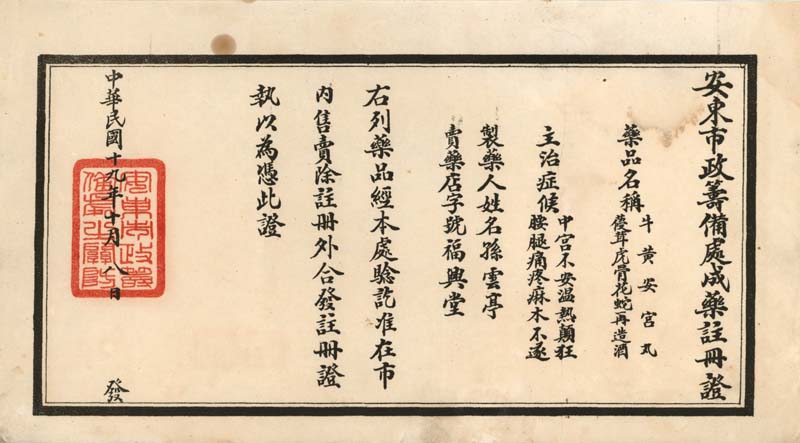 安東市政籌備處成藥註冊證
藥品名稱
牛黃安宮丸
參茸虎骨花蛇再造酒
主治症候
中宮不安温熱顛狂
腰腿痛疼麻木不遂
製藥人姓名孫雲亭
賣藥店字號福興堂
右列藥品經本處驗訖准在市
內售賣除註冊外合發註冊證
執以為憑此證
中華民國十九年十月八日
發